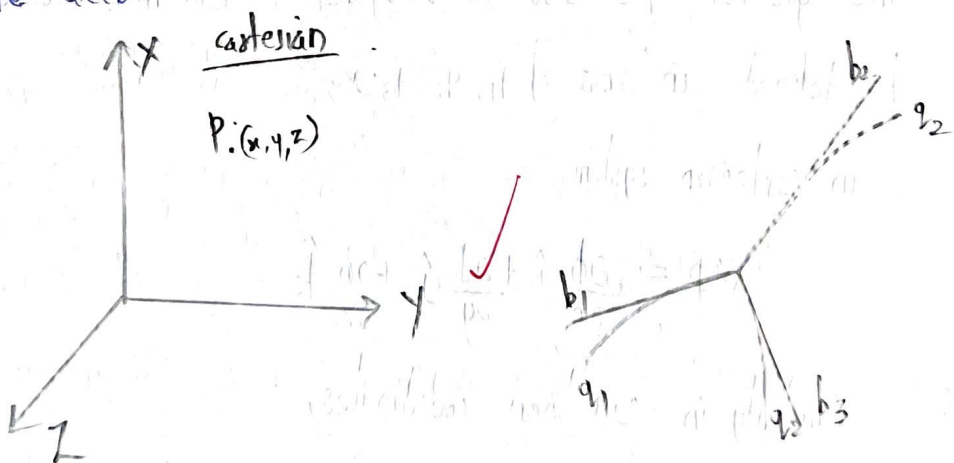 X
cartesian
P.(x,y,z)
Y
Z
b2
q2
b1
q1
q3
b3